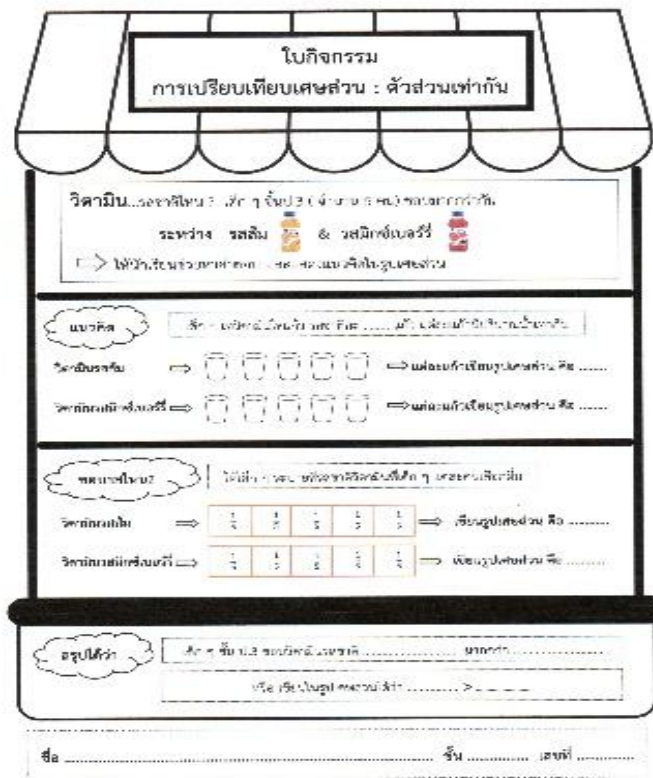 ใบกิจกรรม
การเปรียบเทียบเศษส่วน : ตัวส่วนเท่ากัน
วิตามิน...รสชาติไหน ? เด็ก ๆ ชั้นป.3 ( จำนวน 5 คน) ชอบมากกว่ากัน
ระหว่าง รสส้ม & รสมิกซ์เบอร์รี่
ให้นักเรียนช่วยหาคำตอบ และแสดงแนวคิดในรูปเศษส่วน
แนวคิด
เด็ก ๆ แก้ว แต่ละแก้วมีปริมาณน้ำเท่ากัน
วิตามินรสส้ม แต่ละแก้วเขียนรูปเศษส่วน คือ ........
วิตามินรสมิกซ์เบอร์รี่ แต่ละแก้วเขียนรูปเศษส่วน คือ ........
ชอบรสไหน?
ให้เด็ก ๆ ระบายสีรสชาติวิตามินที่เด็ก ๆ แต่ละคนเลือกดื่ม
วิตามินรสส้ม 1/5 1/5 1/5 1/5 1/5 เขียนรูปเศษส่วน คือ ..........
วิตามินรสมิกซ์เบอร์รี่ 1/5 1/5 1/5 1/5 1/5 เขียนรูปเศษส่วน คือ ..........
สรุปได้ว่า
เด็ก ๆ ชั้น ป.3 ชอบวิตามินรสชาติ ........................ มากกว่า ........................
หรือ เขียนในรูปเศษส่วนได้ว่า ............ > ............
ชื่อ ........................................................................ ชั้น .............. เลขที่ .............